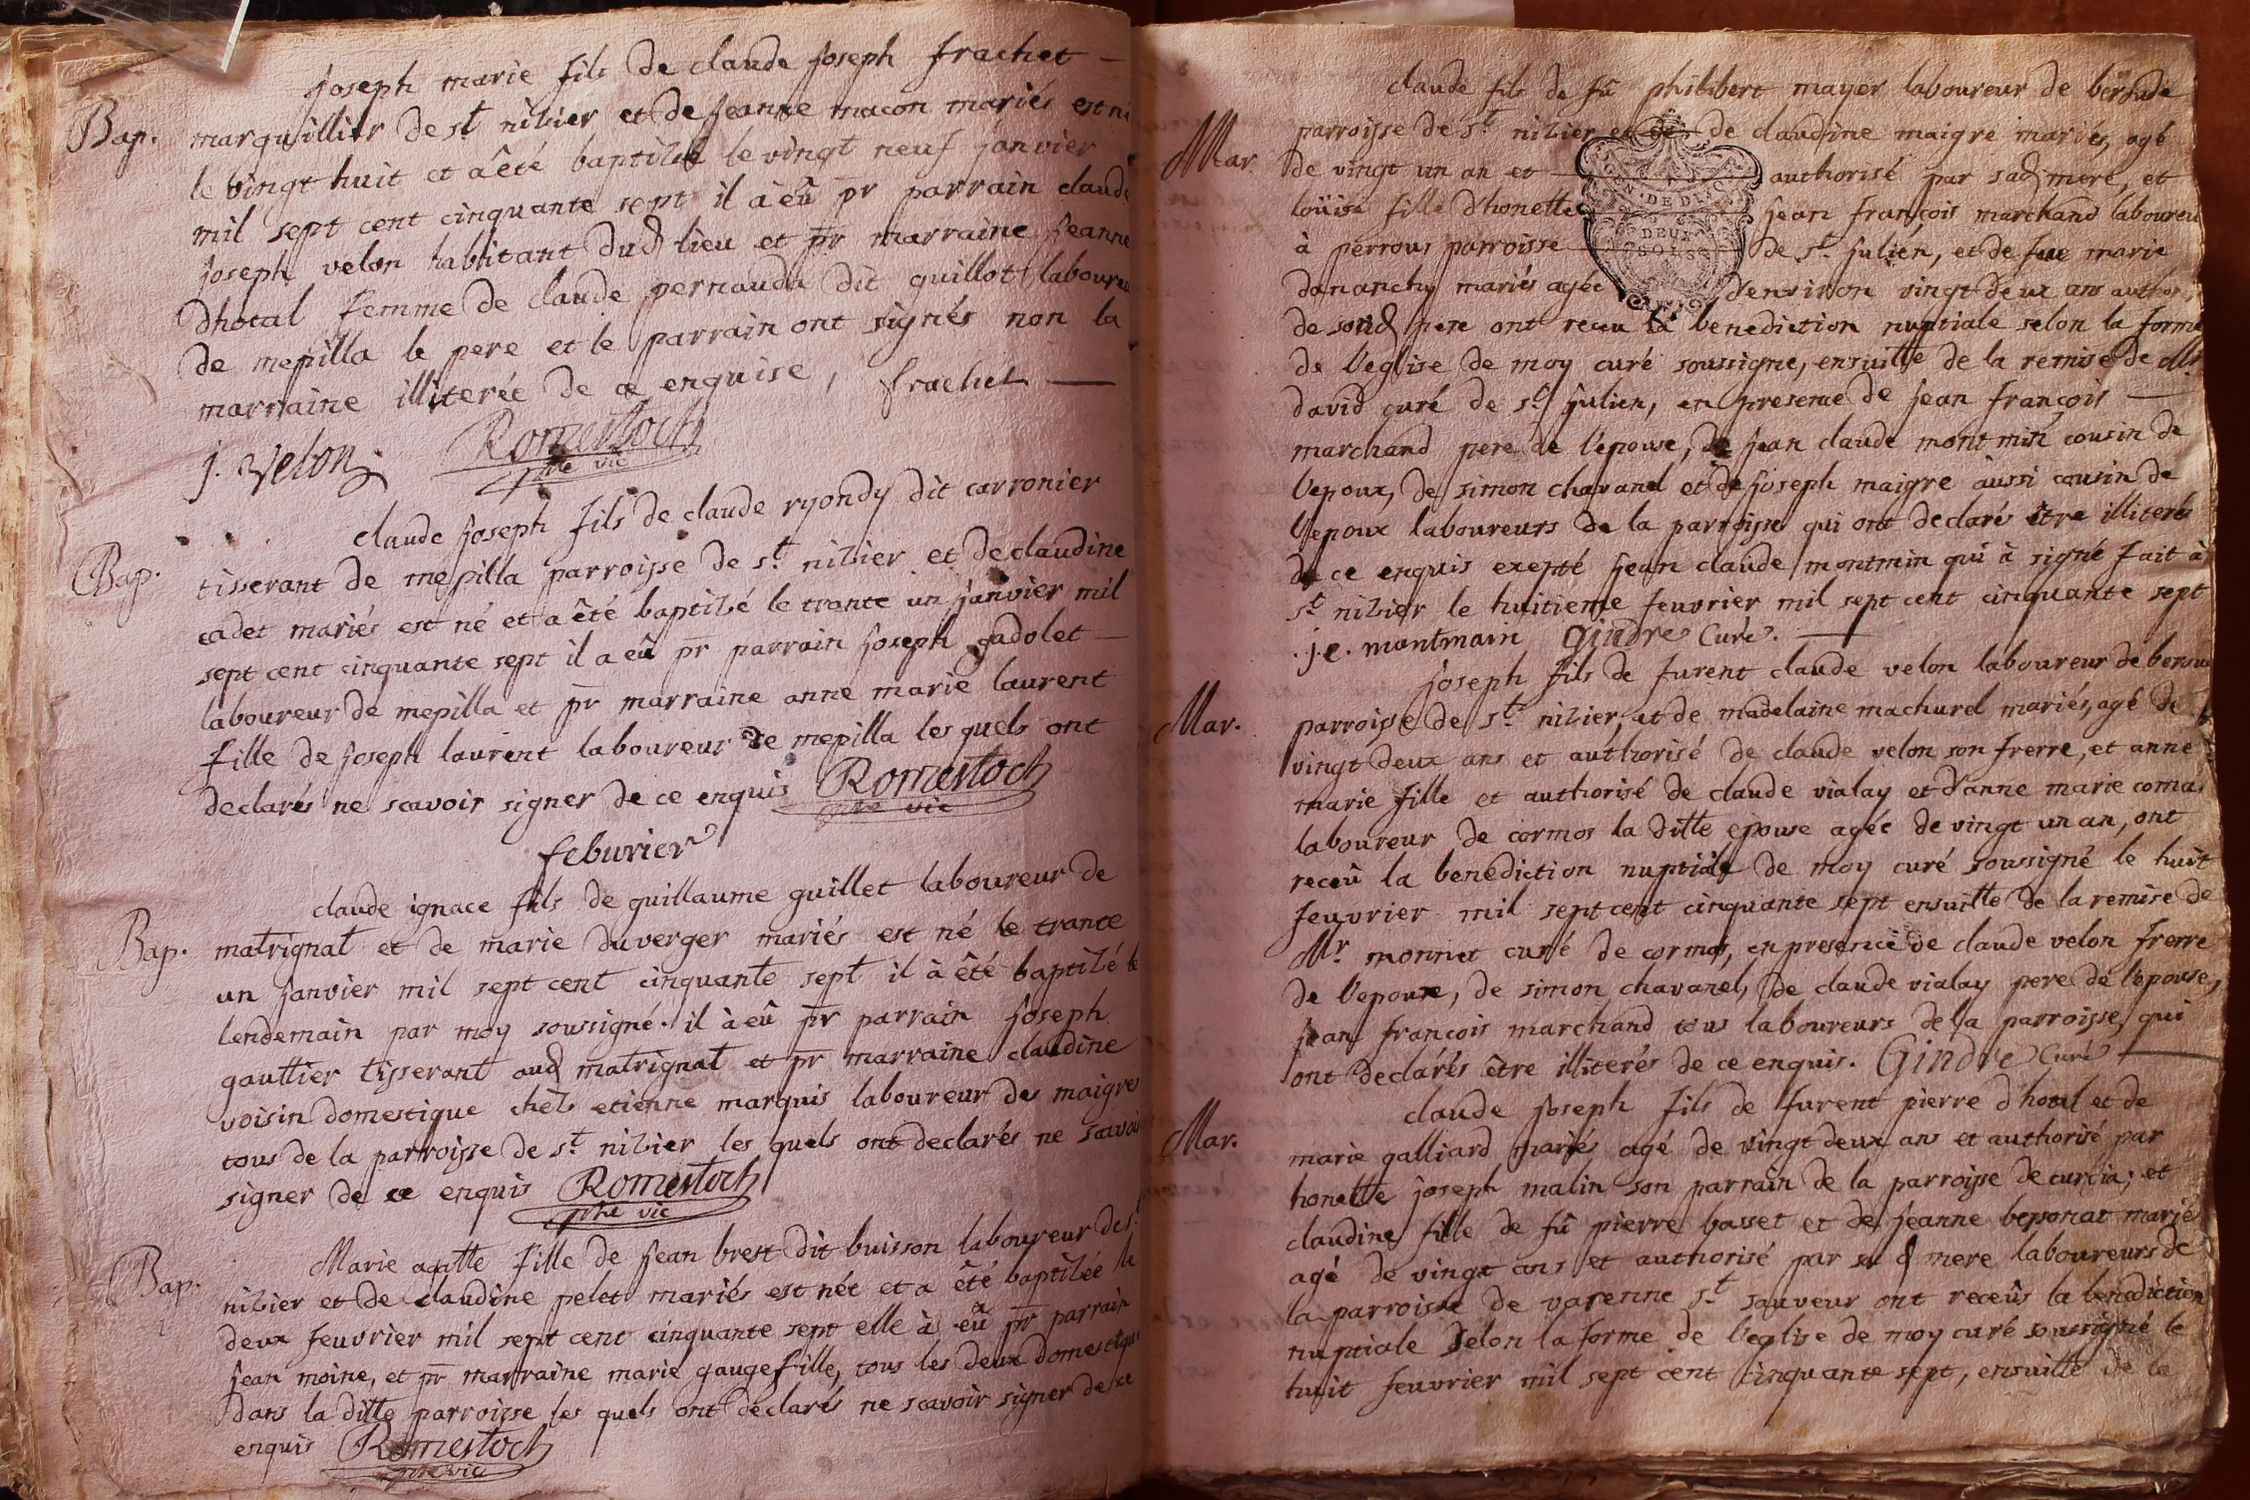 joseph marie fils de claude joseph frachet
Bap. marguillier de st nizier et de jeanne macon mariés est né
le vingt huit et a êté baptisé le vingt neuf janvier
mil sept cent cinquante sept il à eû pr parrain claude
joseph velon habitant dud lieu et pr marraine jeanne
dhotal femme de claude pernaudu dit guillot laboureur
de mepilla le pere et le parrain ont signés non la
marraine illiterée de ce enquise, frachet
j. velon Romestoch
ptre vic
claude joseph fils de claude ryondy dit carronier
Bap. tisserant de mepilla parroisse de st. nizier et de claudine
cadet mariés est né et a êté baptisé le trante un janvier mil
sept cent cinquante sept il a eû pr parrain joseph gadolet
laboureur de mepilla et pr marraine anne marie laurent
fille de joseph laurent laboureur de mepilla les quels ont
declarés ne scavoir signer de ce enquis Romestoch
ptre vic
feburier
claude ignace fils de guillaume guillet laboureur de
Bap. matrignat et de marie duverger mariés est né le trante
un janvier mil sept cent cinquante sept il à êté baptisé le
lendemain par moy soussigné. il à eû pr parrain joseph
gauttier tisserant aud matrignat et pr marraine claudine
voisin domestique chés etienne marquis laboureur des maigres
tous de la parroisse de st. nizier les quels ont declarés ne scavoir
signer de ce enquis Romestoch
ptre vic
Marie agatte fille de jean brest dit buisson laboureur de st.
Bap. nizier et de claudine pelet mariés est née et a êté baptisée le
deux feuvrier mil sept cent cinquante sept elle à eû pr parrain
jean moine, et pr marraine marie gauge fille, tous les deux domestique
dans la ditte parroisse les quels ont déclarés ne scavoir signer de ce
enquis Romestoch
ptre vic
claude fils de fû philibert mayer laboureur de
Mar. parroisse de st. nizier et de claudine maigre mariés, agé
de vingt un an et authorisé par sad mere, et
loüise fille d'honette jean françois marchand laboureur
à perrous parroisse de st. julien, et de feue marie
dananchy mariés agée d'environ vingt deux ans author.
de sond pere ont receu la benediction nuptiale selon la forme
de l'eglise de moy curé soussigne, ensuitte de la remise de Mr
david curé de st. julien, en presence de jean françois
marchand pere de l'epouse, de jean claude montmin cousin de
l'epoux, de simon chavanel et de joseph maigre aussi cousin de
l'epoux laboureurs de la parroisse qui ont declarés être illiterés
de ce enquis exepté jean claude montmin qui à signé fait à
st nizier le huitieme feuvrier mil sept cent cinquante sept
j.c. montmain Gindre Curé.
joseph fils de furent claude velon laboureur de
Mar. parroisse de st. nizier, et de madelaine machurel mariés, agé de
vingt deux ans et authorisé de claude velon son frerre, et anne
marie fille et authorisé de claude vialay et d'anne marie comas
laboureur de cormos la ditte epouse agée de vingt un an, ont
receû la benediction nuptiale de moy curé soussigné le huit
feuvrier mil sept cent cinquante sept ensuitte de la remise de
Mr. monnet curé de cormos, en presence de claude velon frerre
de l'epoux, de simon chavanel, de claude vialay pere de l'epouse,
jean françois marchand tous laboureurs de la parroisse, qui
ont declarés être illiterés de ce enquis. Gindre Curé
claude joseph fils de furent pierre d'hotal et de
Mar. marie galliard mariés agé de vingt deux ans et authorisé par
honette joseph malin son parrain de la parroisse de curcia; et
claudine fille de fû pierre basset et de jeanne besponat mariés
agé de vingt ans et authorisé par sa d mere laboureurs de
la parroisse de varenne st. sauveur ont receûs la benediction
nuptiale selon la forme de l'eglise de moy curé soussigné le
huit feuvrier mil sept cent cinquante sept, ensuitte de la
GEN. DE DI
DEUX
SOLS